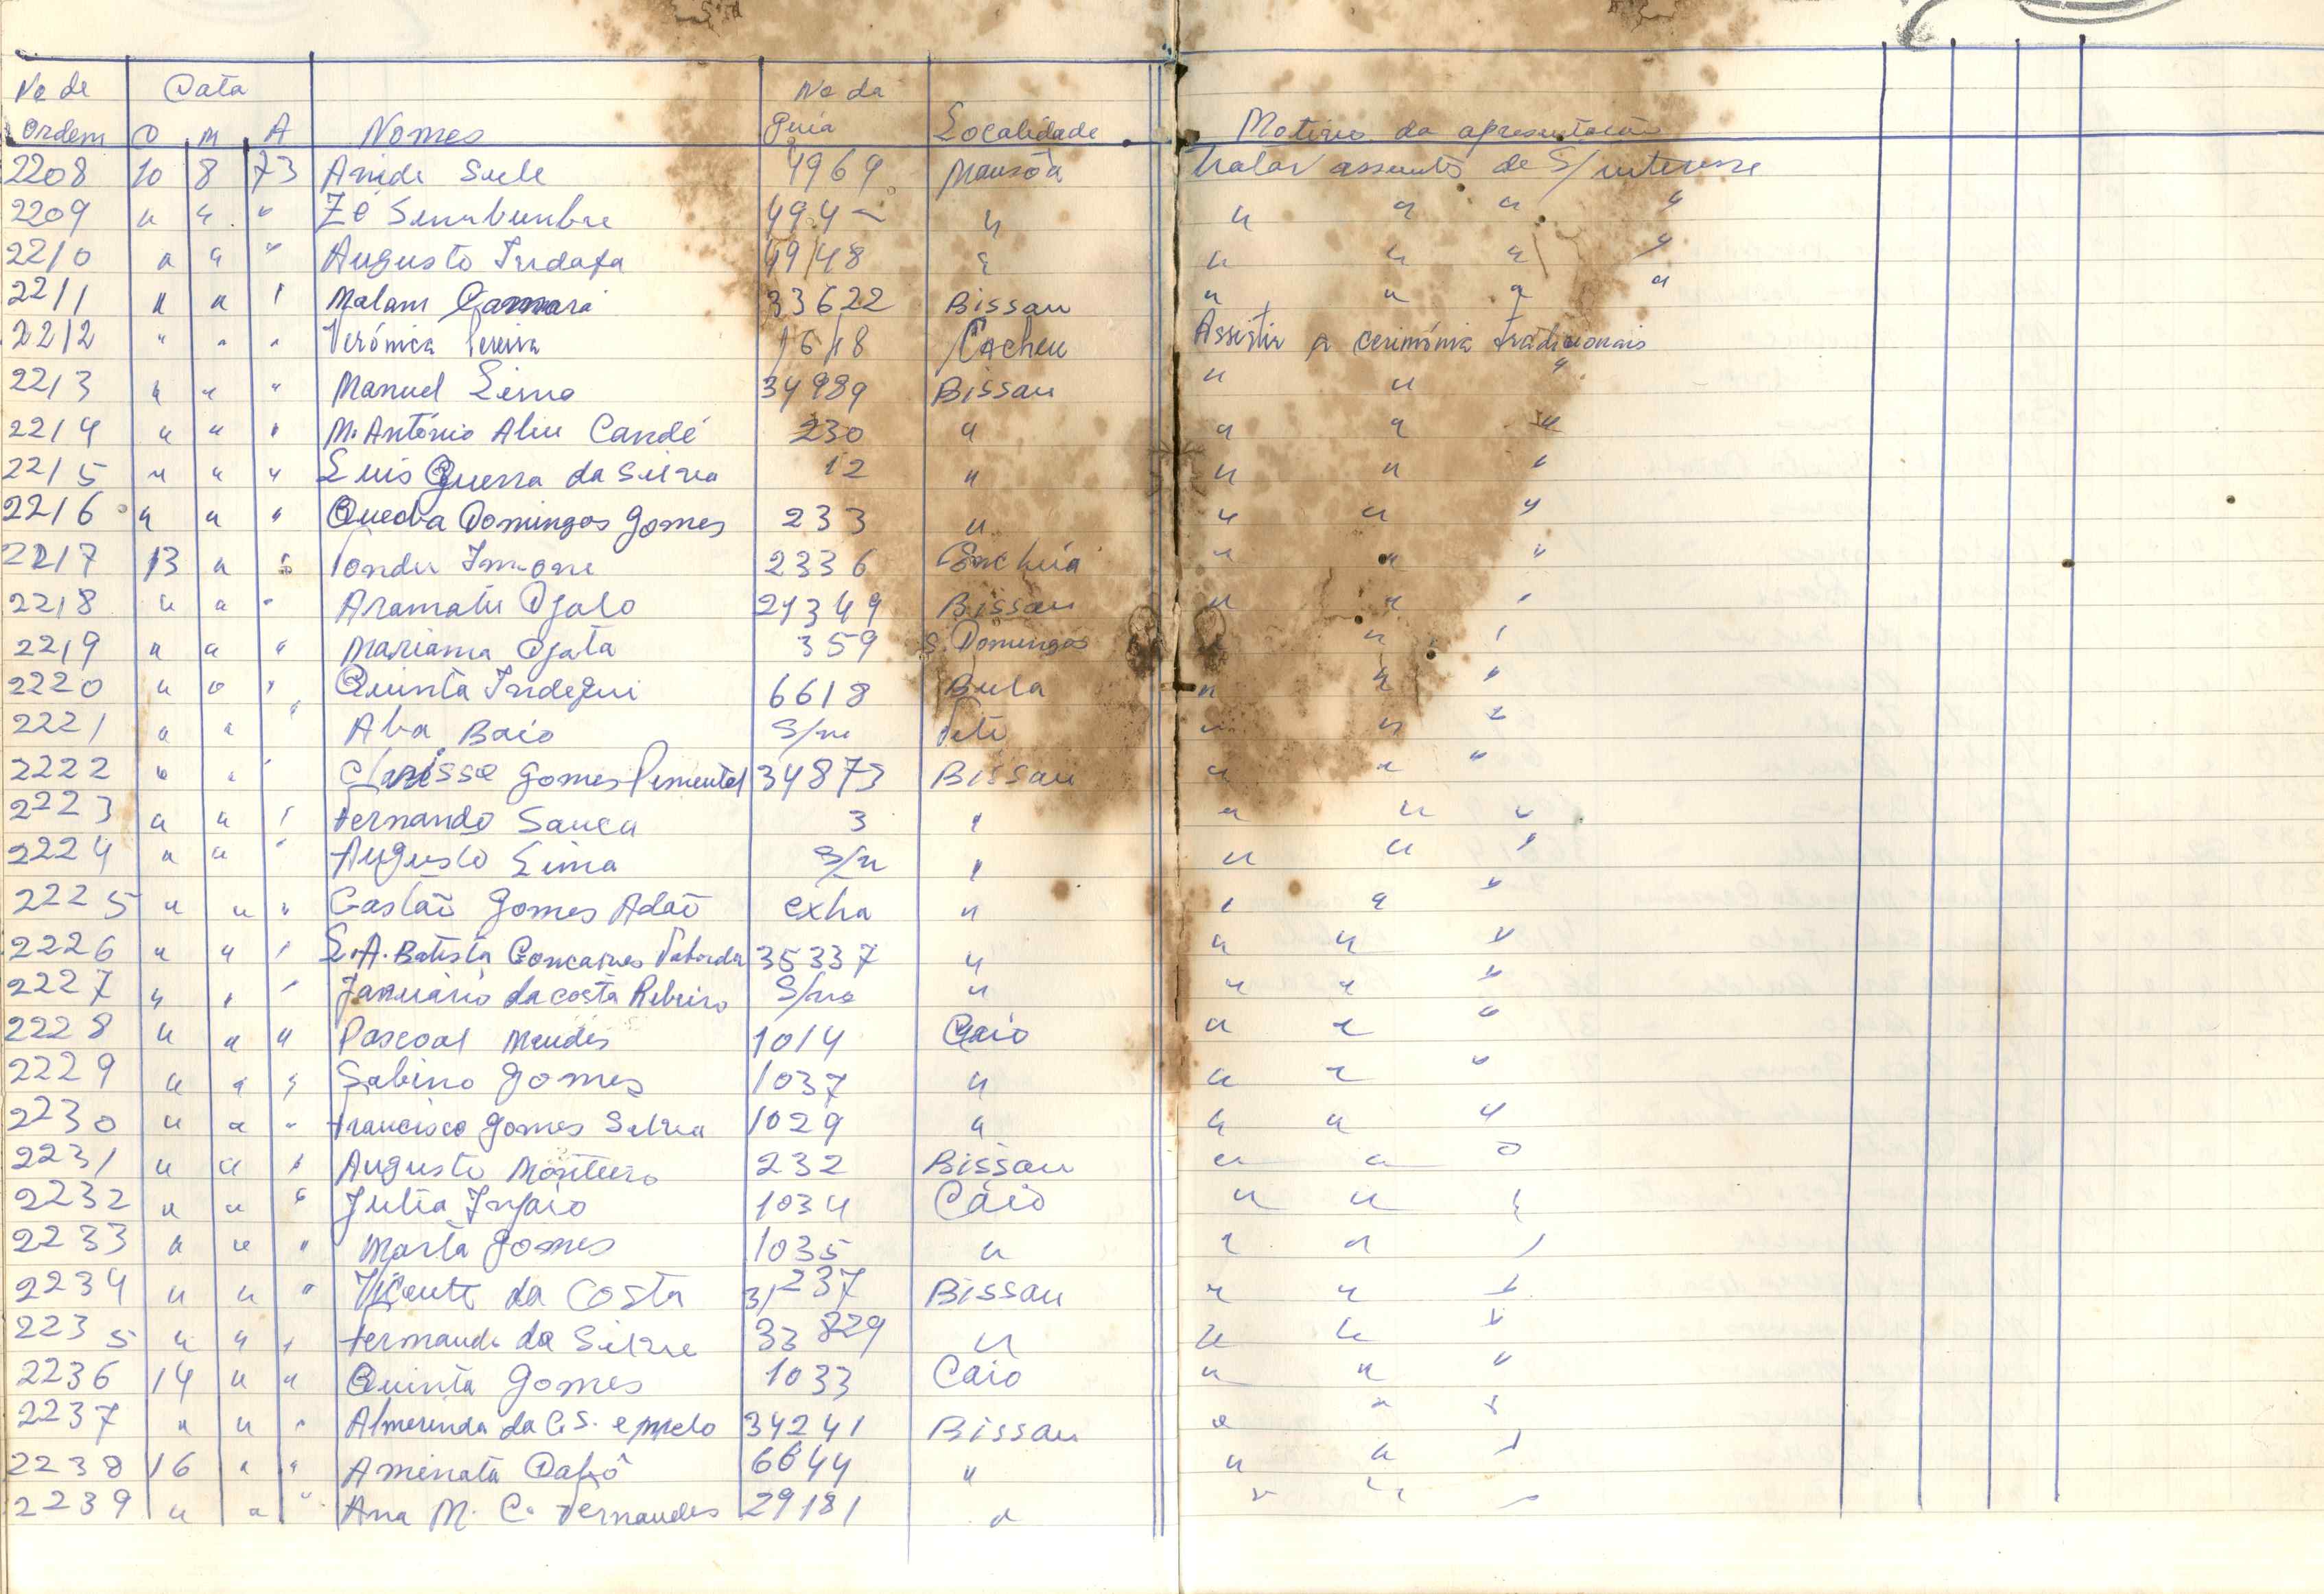 No de Data No da
Ordem D M A Nomes Guia Localidade Motivo da apresentação
2208 10 8 73 Anide Sule 4969 Mansoa tratar assunto de S/ interesse
2209 " " " Zé 494 " " " " "
2210 " " " Augusto Indafa 4948 " " " " "
2211 " " " Malam Camara 33622 Bissau " " " "
2212 " " " Verónica Pereira 1618 Cacheu Assistir a cerimónia tradicionais
2213 " " " Manuel Lima 34989 Bissau " " "
2214 " " " M. António Aliu Candé 230 " " " "
2215 " " " Luis Guerra da Silva 12 " " " "
2216 " " " Queba Domingos Gomes 233 " " " "
2217 13 " " 2336 Encheia " " "
2218 " " " Aramatu Djalo 21349 Bissau " " "
2219 " " " Mariama Djata 359 S. Domingos " "
2220 " " " Quinta Indegui 6618 Bula " " "
2221 " " " Aba Baio S/no " " "
2222 " " " Clarisse Gomes Pimentel 34873 Bissau " " "
2223 " " " Fernando Sanca 3 " " " "
2224 " " " Augusto Lima S/n " " " "
2225 " " " Gastão Gomes Adão extra " " " "
2226 " " " L.A. Batista Goncalves Taborda 35337 " " " "
2227 " " " Januário da costa Ribeiro S/no " " " "
2228 " " " Pascoal Mendes 1014 Caio " " "
2229 " " " Sabino Gomes 1037 " " " "
2230 " " " Francisco Gomes Silva 1029 " " " "
2231 " " " Augusto Monteiro 232 Bissau " " "
2232 " " " Julia 1034 Caio " " "
2233 " " " Marta Gomes 1035 " " " "
2234 " " " Vicente da Costa 31237 Bissau " " "
2235 " " " Fernando da Silva 33829 " " " "
2236 14 " " Quinta Gomes 1033 Caio " " "
2237 " " " Almerinda da C. S. e melo 34241 Bissau " " "
2238 16 " " Aminata Dabó 6644 " " " "
2239 " " " Ana M. C. Fernandes 29181 " " " "